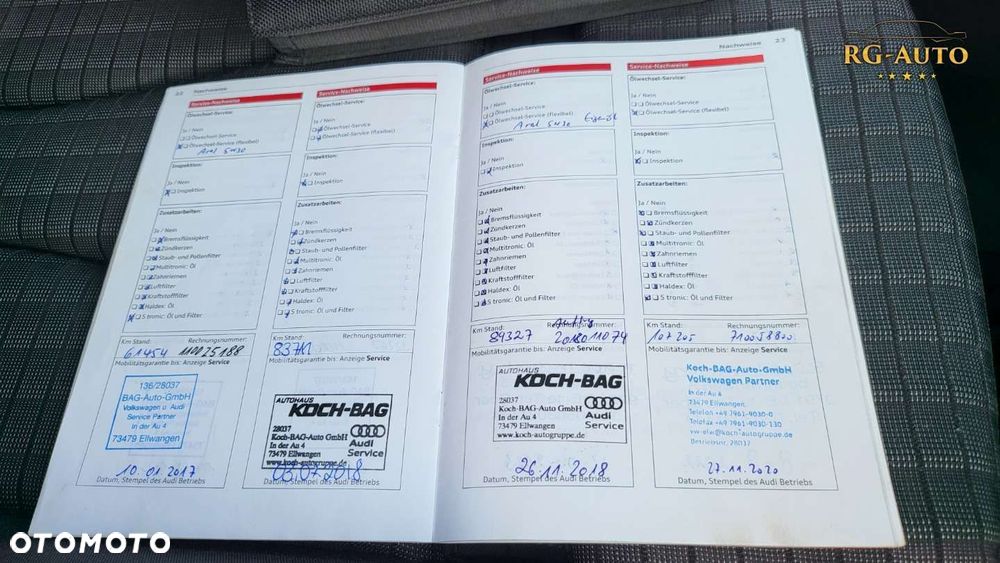 RG-AUTO
22 Nachweise
Service-Nachweise
Ölwechsel-Service:
Ja / Nein
Ölwechsel-Service
Ölwechsel-Service (flexibel)
Aral 5w30
Inspektion:
Ja / Nein
Inspektion
Zusatzarbeiten:
Ja / Nein
Bremsflüssigkeit
Zündkerzen
Staub- und Pollenfilter
Multitronic: Öl
Zahnriemen
Luftfilter
Kraftstofffilter
Haldex: Öl
S tronic: Öl und Filter
Km Stand: Rechnungsnummer:
61454
Mobilitätsgarantie bis: Anzeige Service
136/28037
BAG-Auto-GmbH
Volkswagen u. Audi
Service Partner
In der Au 4
73479 Ellwangen
10.01.2017
Datum, Stempel des Audi Betriebs
Service-Nachweise
Ölwechsel-Service:
Ja / Nein
Ölwechsel-Service
Ölwechsel-Service (flexibel)
Inspektion:
Ja / Nein
Inspektion
Zusatzarbeiten:
Ja / Nein
Bremsflüssigkeit
Zündkerzen
Staub- und Pollenfilter
Multitronic: Öl
Zahnriemen
Luftfilter
Kraftstofffilter
Haldex: Öl
S tronic: Öl und Filter
Km Stand: Rechnungsnummer:
Mobilitätsgarantie bis: Anzeige Service
AUTOHAUS
KOCH-BAG
28037
Koch-BAG-Auto GmbH
In der Au 4
73479 Ellwangen
www.koch-autogruppe.de
Audi
Service
03.07.2018
Datum, Stempel des Audi Betriebs
Nachweise 23
Service-Nachweise
Ölwechsel-Service:
Ja / Nein
Ölwechsel-Service
Ölwechsel-Service (flexibel)
Aral 5w30
Inspektion:
Ja / Nein
Inspektion
Zusatzarbeiten:
Ja / Nein
Bremsflüssigkeit
Zündkerzen
Staub- und Pollenfilter
Multitronic: Öl
Zahnriemen
Luftfilter
Kraftstofffilter
Haldex: Öl
S tronic: Öl und Filter
Km Stand: Rechnungsnummer:
89327 2018011074
Mobilitätsgarantie bis: Anzeige Service
AUTOHAUS
KOCH-BAG
28037
Koch-BAG-Auto GmbH
In der Au 4
73479 Ellwangen
www.koch-autogruppe.de
Audi
Service
26.11.2018
Datum, Stempel des Audi Betriebs
Service-Nachweise
Ölwechsel-Service:
Ja / Nein
Ölwechsel-Service
Ölwechsel-Service (flexibel)
Inspektion:
Ja / Nein
Inspektion
Zusatzarbeiten:
Ja / Nein
Bremsflüssigkeit
Zündkerzen
Staub- und Pollenfilter
Multitronic: Öl
Zahnriemen
Luftfilter
Kraftstofffilter
Haldex: Öl
S tronic: Öl und Filter
Km Stand: Rechnungsnummer:
107205 710058800
Mobilitätsgarantie bis: Anzeige Service
Koch-BAG-Auto-GmbH
Volkswagen Partner
In der Au 4
73479 Ellwangen
Telefon +49 7961-9030-0
Telefax +49 7961-9030-130
vw-elw@koch-autogruppe.de
Betriebsnr. 28037
27.11.2020
Datum, Stempel des Audi Betriebs
OTOMOTO